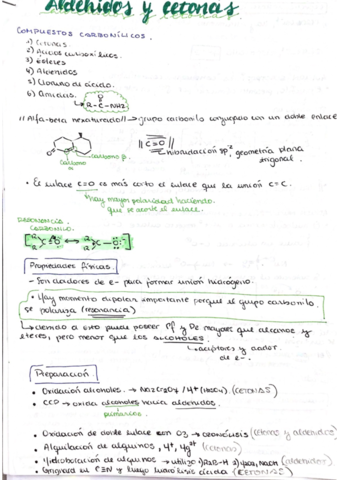 Aldehidos y cetonas
COMPUESTOS CARBONÍLICOS.
1) Cetonas
2) Ácidos carboxílicos
3) Ésteres
4) Aldehidos
5) Cloruro de ácido
6) Amidas.
O
R-C-NH2
//Alfa-beta insaturado// → grupo carbonilo conjugado con un doble enlace
carbono α
carbono β
|| C=O || hibridación sp², geometría plana
trigonal.
• El enlace C=O es más corto el enlace que la unión C=C.
↳ hay mayor polaridad haciendo
que se acorte el enlace.
RESONANCIA
CARBONILO
Propiedades físicas.
- Son aceptores de e- para formar unión hidrógeno.
• Hay momento dipolar importante porque el grupo carbonilo
se polariza (resonancia)
↳ debido a esto puras poseer Pf y Pe mayores que alcanos y
éteres, pero menor que los ALCOHOLES.
↳ aceptores y dador
de e-.
Preparación.
• Oxidación alcoholes → Na2Cr2O7 / H+ (H2SO4). (CETONAS)
• CCP → oxida alcoholes hacia aldehidos.
primarios
• Oxidación de doble enlace con O3 → ozonólisis (cetonas y aldehidos)
• Hidratación de alquinos, H+, Hg2+ (cetona)
• Hidroboración de alquinos →
• Grignard en C≡N y luego hidrólisis ácida (CETONAS)